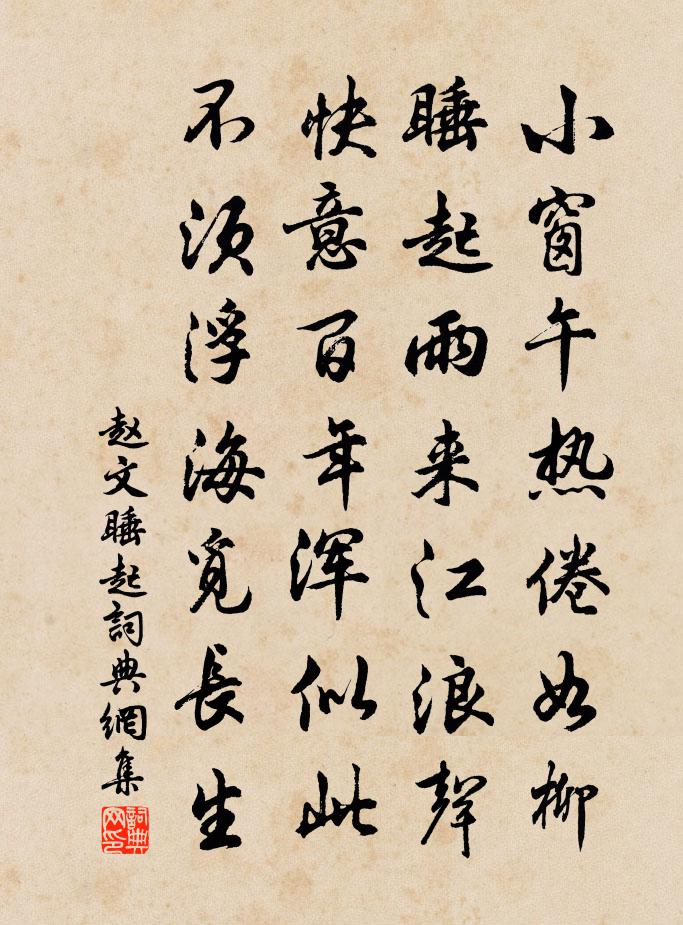 小窗午热倦如柳
睡起雨来江浪聲
快意百年浑似此
不须浮海覓長生
赵文睡起詞典網集
詞典网印